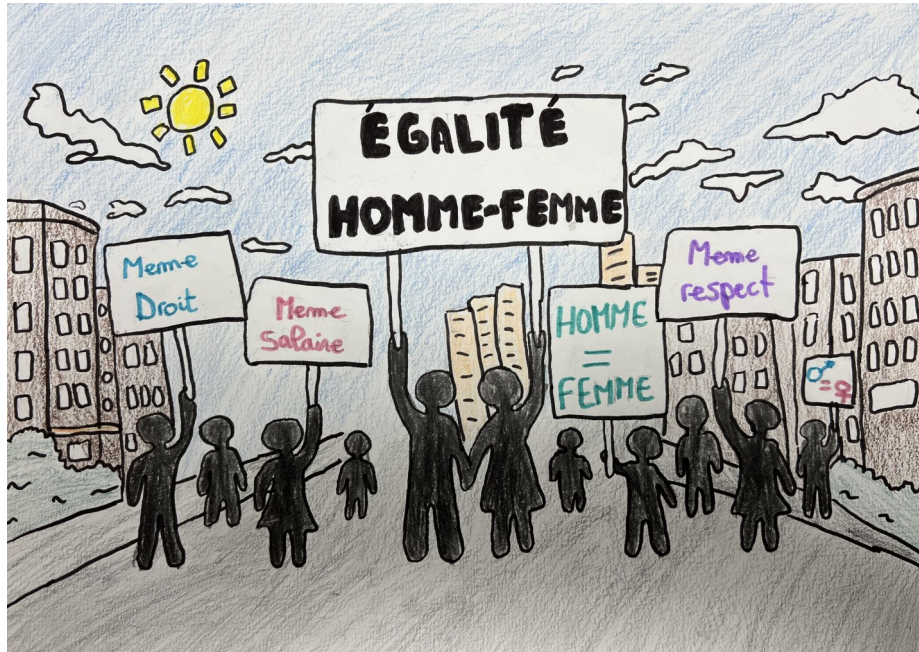 ÉGALITÉ
HOMME-FEMME
Meme
Droit
Meme
Salaire
HOMME
=
FEMME
Meme
respect
♂
=♀